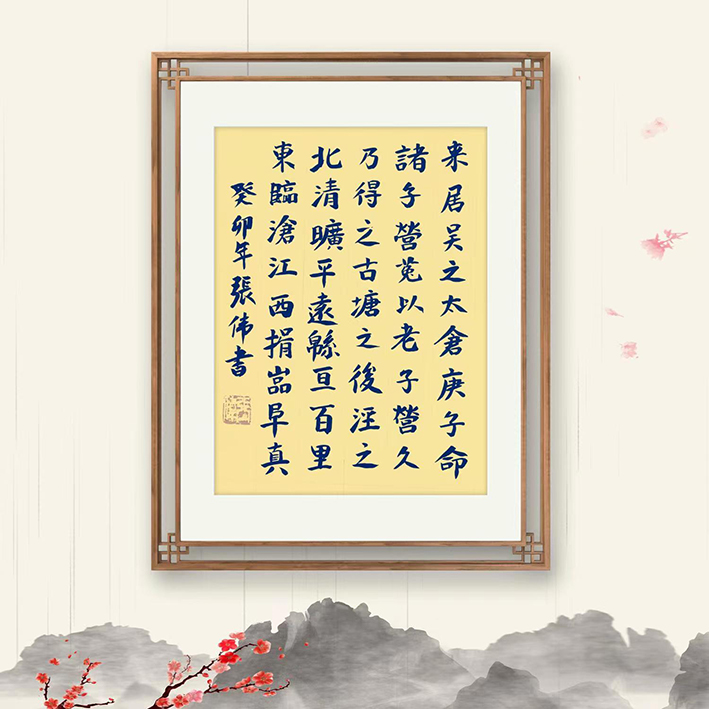 来居吴之太倉庚子命
諸子營菟以老子營久
乃得之古塘之後涇之
北清曠平遠緜亘百里
東臨滄江西揖嵓阜真
癸卯年張伟書